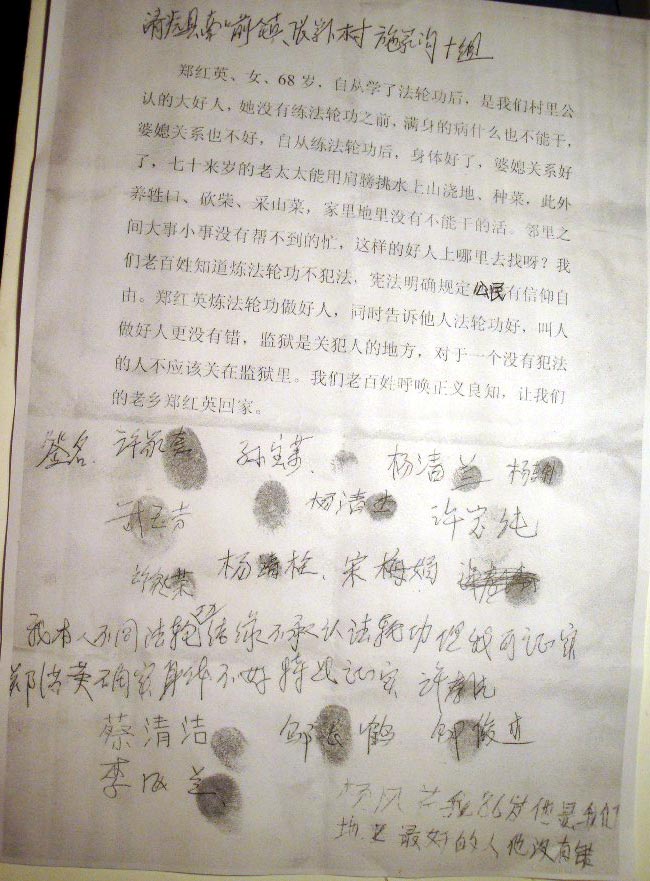 清 县南 前镇 村施家沟十组
郑红英、女、68岁，自从学了法轮功后，是我们村里公
认的大好人，她没有练法轮功之前，满身的病什么也不能干，
婆媳关系也不好，自从练法轮功后，身体好了，婆媳关系好
了，七十来岁的老太太能用肩膀挑水上山浇地、种菜，此外
养牲口、砍柴、采山菜，家里地里没有不能干的活。邻里之
间大事小事没有帮不到的忙，这样的好人上哪里去找呀？我
们老百姓知道炼法轮功不犯法，宪法明确规定公民有信仰自
由。郑红英炼法轮功做好人，同时告诉他人法轮功好，叫人
做好人更没有错，监狱是关犯人的地方，对于一个没有犯法
的人不应该关在监狱里。我们老百姓呼唤正义良知，让我们
的老乡郑红英回家。
签名 许 孙宝 杨清兰 杨
杨清 许 纯
杨清栓、宋梅娟
我本人不 法轮 不承认法轮功但我可证实
郑 英确实身体不好特此证实 许
蔡清洁 邹 鹤 邹俊
李 兰
杨凤 86岁他是我们
地 最好的人他没有错